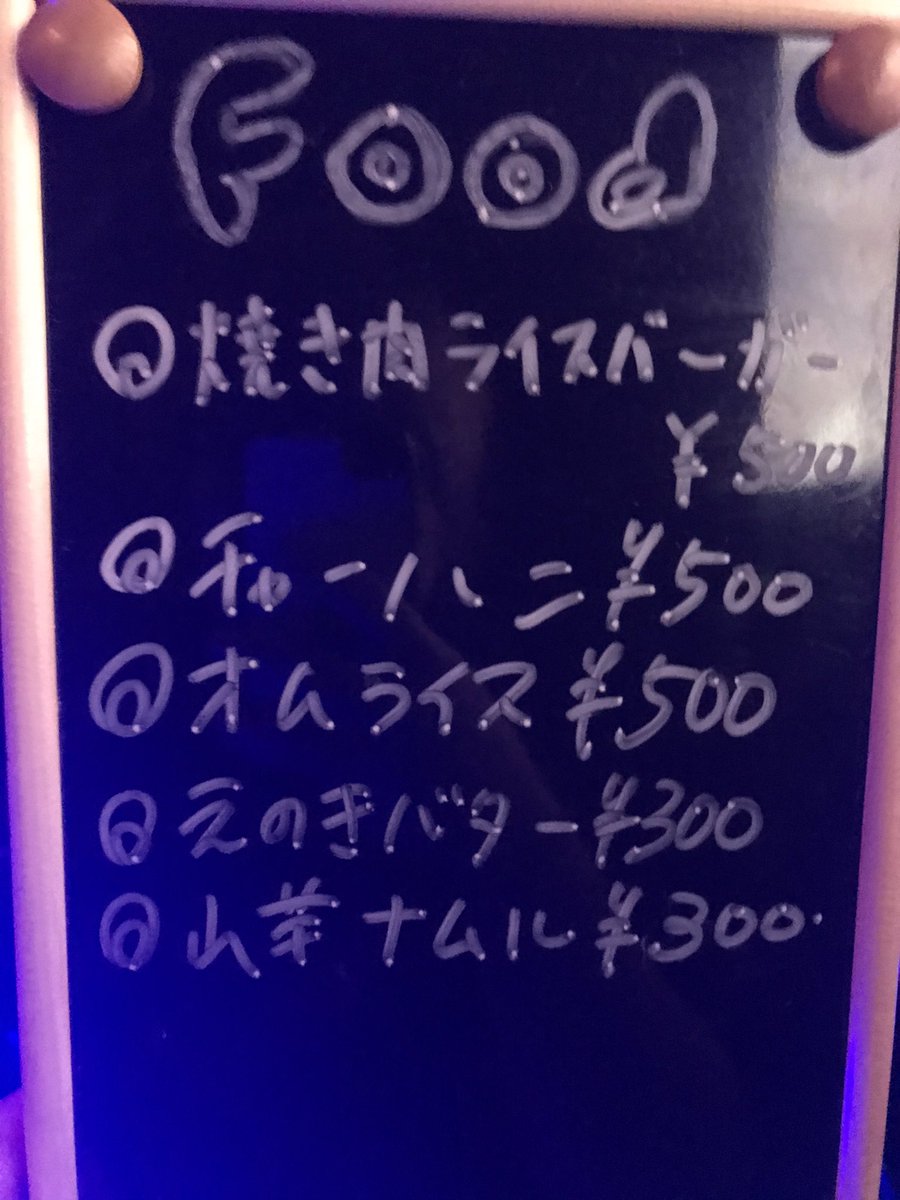 Food
◎焼き肉ライスバーガー
¥500
◎チャーハン¥500
◎オムライス¥500
◎えのきバター¥300
◎山芋ナムル¥300